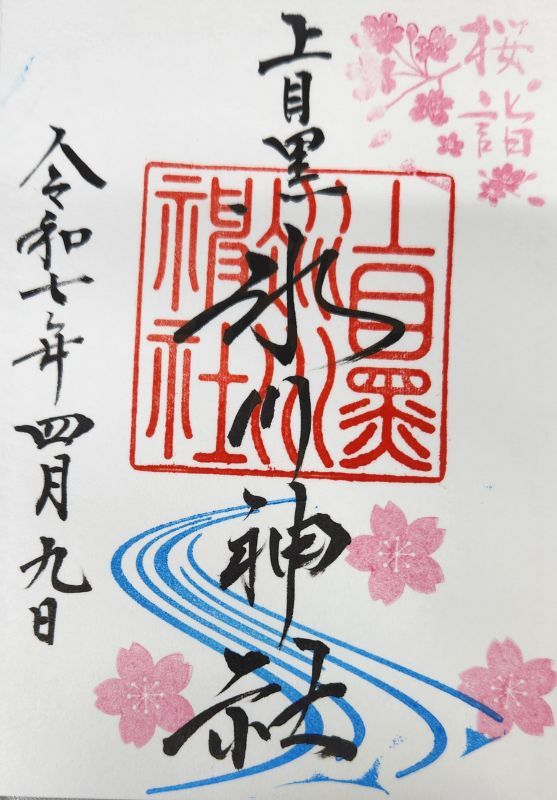 桜詣
上目黒氷川神社
上目黒
氷川
神社
令和七年四月九日